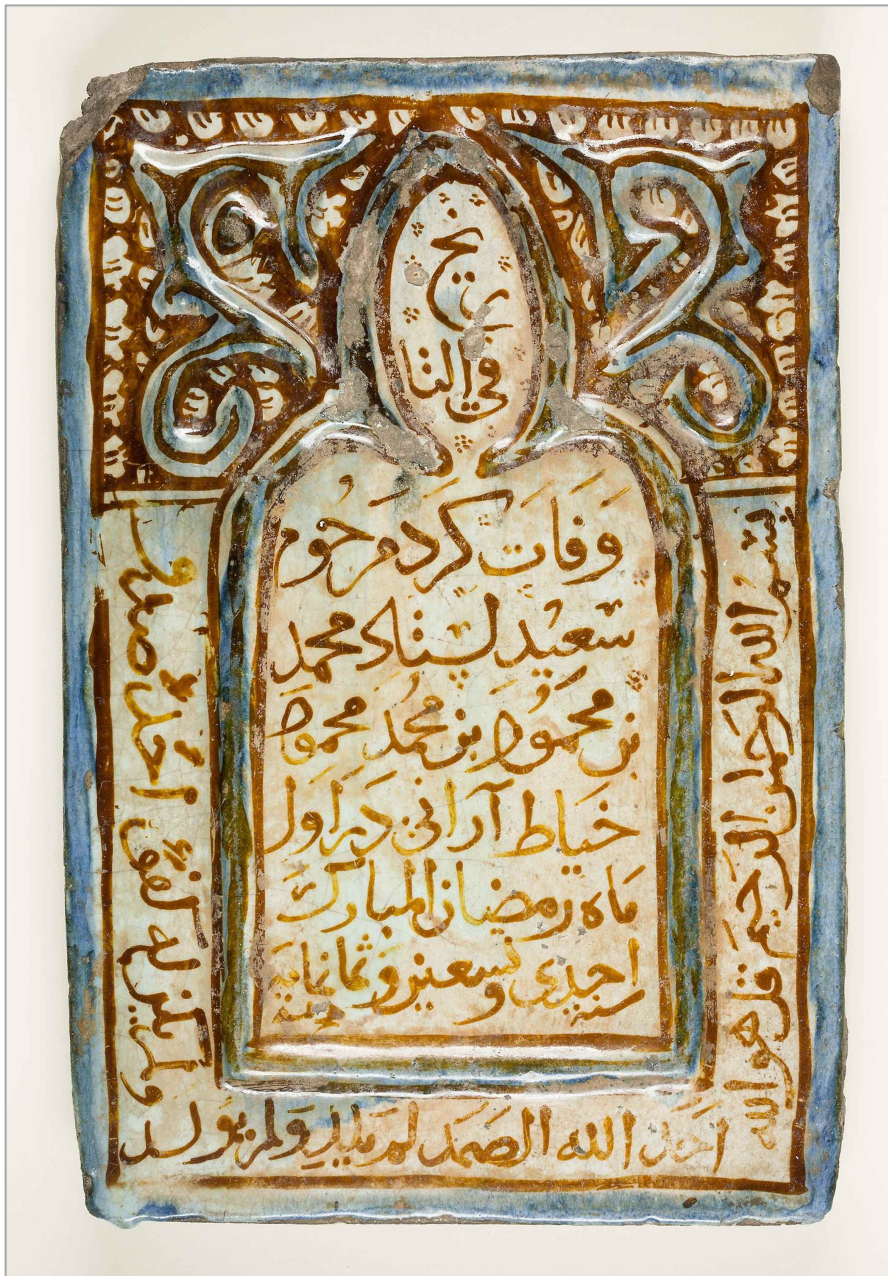 في التا
ريخ
وَفَات كَردمَرحوم
سَعِيد استاد محمد
بن محمود بن محمد محمود
خياط آرانی در اول
ماه رمضان المبارك
سنة احدى وتسعين وثمانمايه
بسم الله الرحمن الرحيم قل هو الله
احد الله الصمد لم يلد ولم يولد
ولم يكن له كفوا احد صدق